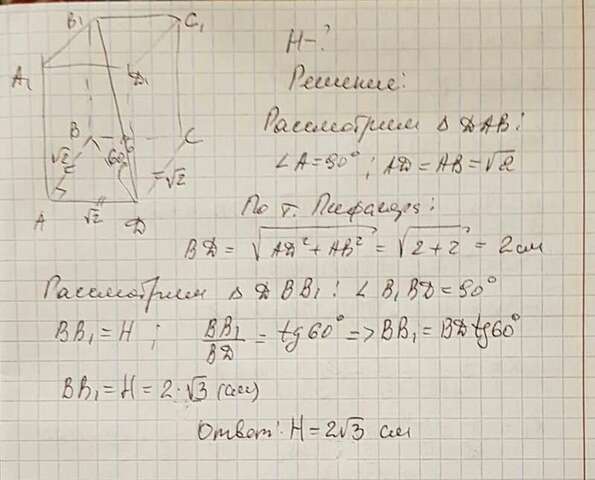 B₁
C₁
A₁
D₁
B
C
√2
60°
√2
A
√2
D
H-?
Решение:
Рассмотрим Δ DAB:
∠A=90°; AD=AB=√2
По т. Пифагора:
BD = √(AD²+AB²) = √(2+2) = 2см
Рассмотрим Δ DBB₁: ∠B₁BD=90°
BB₁=H; BB₁/BD = tg60° => BB₁=BDtg60°
BB₁=H=2·√3 (см)
Ответ: H=2√3 см